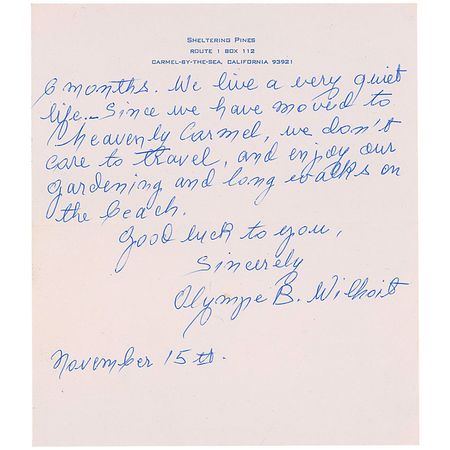 SHELTERING PINES
ROUTE 1 BOX 112
CARMEL-BY-THE-SEA, CALIFORNIA 93921
6 months. We live a very quiet
life._ Since we have moved to
heavenly Carmel, we don't
care to travel, and enjoy our
gardening and long walks on
the beach.
Good luck to you,
Sincerely
Olympe B. Wilhoit
November 15th.